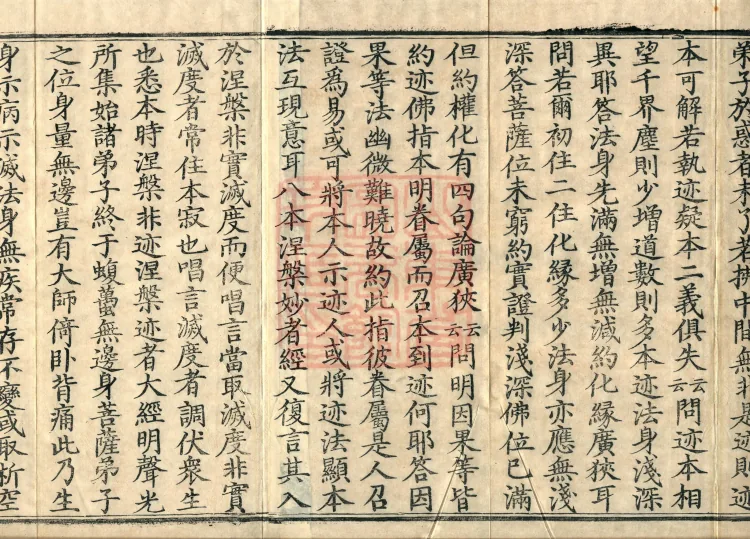 弟子於者未了若中間無非是迹則迹
本可解若執迹疑本二義俱失云云問迹本相
望千界塵則少增道數則多本迹法身淺深
異耶答法身先滿無增無減約化緣廣狹耳
問若爾初住二住化緣多少法身亦應無淺
深答菩薩位未窮約實證判淺深佛位已滿
但約權化有四句論廣狹云云問明因果等皆
約迹佛指本明眷屬而召本到迹何耶答因
果等法幽微難曉故約此指彼眷屬是人召
證爲易或可將本人示迹人或將迹法顯本
法互現意耳八本涅槃妙者經又復言其入
於涅槃非實滅度而便唱言當取滅度非實
滅度者常住本寂也唱言滅度者調伏衆生
也悉本時涅槃非迹涅槃迹者大經明聲光
所集始諸弟子終于蝮蠆無邊身菩薩弟子
之位身量無邊豈有大師倚卧背痛此乃生
身示病示滅法身無疾常存不變或取析空